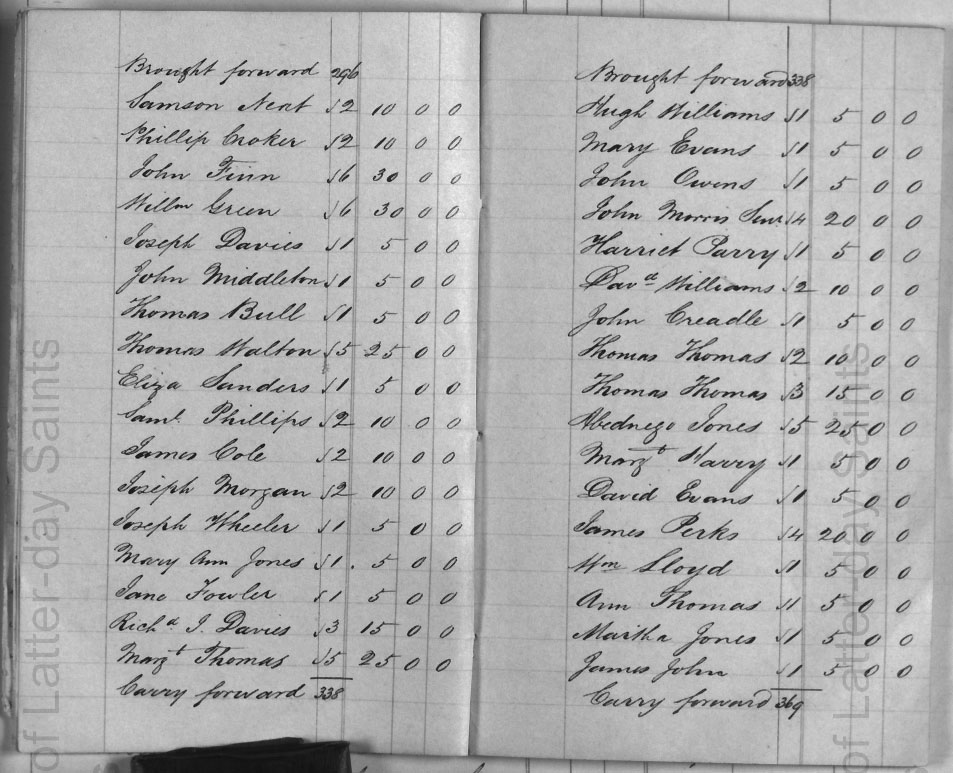 Brought forward 296
Samson Neat √2 10 0 0
Phillip Croker √2 10 0 0
John Finn √6 30 0 0
Willm Green √6 30 0 0
Joseph Davies √1 5 0 0
John Middleton √1 5 0 0
Thomas Bull √1 5 0 0
Thomas Walton √5 25 0 0
Eliza Sanders √1 5 0 0
Saml. Phillips √2 10 0 0
James Cole √2 10 0 0
Joseph Morgan √2 10 0 0
Joseph Wheeler √1 5 0 0
Mary Ann Jones √1. 5 0 0
Jane Fowler √1 5 0 0
Richd J. Davies √3 15 0 0
Margt Thomas √5 25 0 0
Carry forward 338
Brought forward 338
Hugh Williams √1 5 0 0
Mary Evans √1 5 0 0
John Owens √1 5 0 0
John Morris Senr √4 20 0 0
Harriet Parry √1 5 0 0
Davd Williams √2 10 0 0
John Creadle √1 5 0 0
Thomas Thomas √2 10 0 0
Thomas Thomas √3 15 0 0
Abednego Jones √5 25 0 0
Margt Harry √1 5 0 0
David Evans √1 5 0 0
James Perks √4 20 0 0
Wm Lloyd √1 5 0 0
Ann Thomas √1 5 0 0
Martha Jones √1 5 0 0
James John √1 5 0 0
Carry forward 369
of Latter-day Saints
of Latter-day Saints